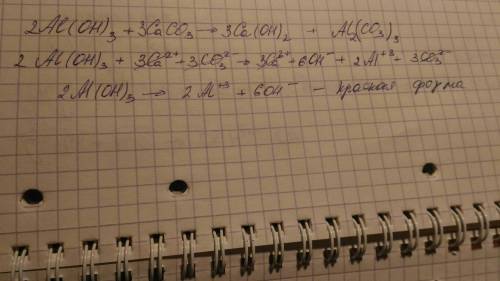 2Al(OH)₃ + 3CaCO₃ → 3Ca(OH)₂ + Al₂(CO₃)₃
2 Al(OH)₃ + 3Ca²⁺ + 3CO₃²⁻ → 3Ca²⁺ + 6OH⁻ + 2Al⁺³ + 3CO₃²⁻
2Al(OH)₃ → 2Al⁺³ + 6OH⁻ – красная форма